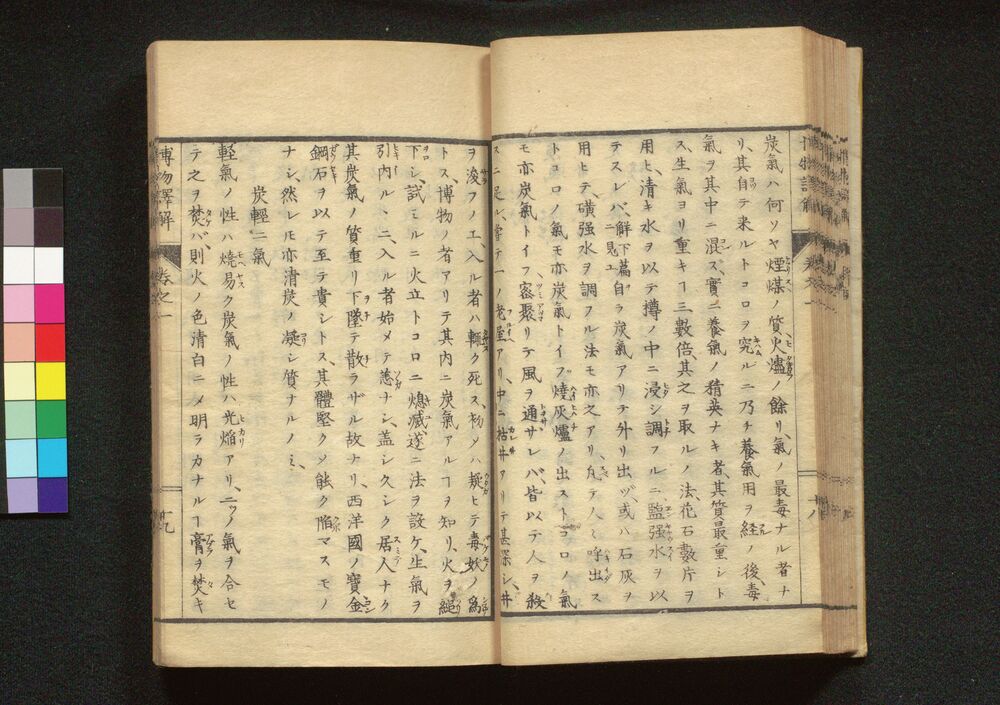 炭氣ハ何ソヤ煙煤ノ質火爐ノ餘リ氣ノ最毒ナル者ナ
リ、其自テ来ルトコロヲ究ルニ乃チ養氣用ヲ経ノ後、毒
氣ヲ其中ニ混ス、實ニ養氣ノ精英ナキ者、其質最重シト
ス、生氣ヨリ重キヿ三數倍、其之ヲ取ルノ法、花石數片ヲ
用ヒ、清キ水ヲ以テ撙ノ中ニ浸シ調フルニ、塩强水ヲ以
テスレバ、解下篇ニ見ユ自ラ炭氣アリテ外リ出ヅ、或ハ石灰ヲ
用ヒテ、磺强水ヲ調フル法モ亦之アリ、凡テノ人ノ呼出ス
トコロノ氣モ亦炭氣トイフ、燒灰爐ノ出ストコロノ氣
モ亦炭氣トイフ、密聚リテ風ヲ通サレバ、皆以テ人ヲ殺
スニ足ル、嘗テ一ノ老屋アリ、中ニ枯井アリテ甚深シ、井
ヲ浚フノエ、入ル者ハ輙ク死ス、初メハ疑ヒテ毒妖ノ爲
トス、博物ノ者アリテ其内ニ炭氣アルヿヲ知リ、火ヲ縋
下シ、試ミルニ火立トコロニ熄滅、遂ニ法ヲ設ケ、生氣ヲ
引内ルヽニ、入ル者始メテ恙ナシ、蓋シ久シク居人ナク
其炭氣ノ質重リ下墜テ散ラザル故ナリ、西洋國ノ寶金
鋼石ヲ以テ至テ貴シトス、其體堅クメ蝕ク陥マスモノ
ナシ、然レモ亦清炭ノ凝シ質ナルノミ、
炭輕二氣
軽氣ノ性ハ燒易ク炭氣ノ性ハ光焔アリ、二ツノ氣ヲ合セ
テ之ヲ焚バ、則火ノ色清白ニメ明ラカナルヿ膏ヲ焚キ
博物譯解
卷之一
十九